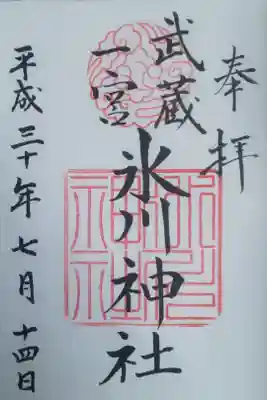 奉拝
武蔵
一宮
氷川神社
平成三十年七月十四日